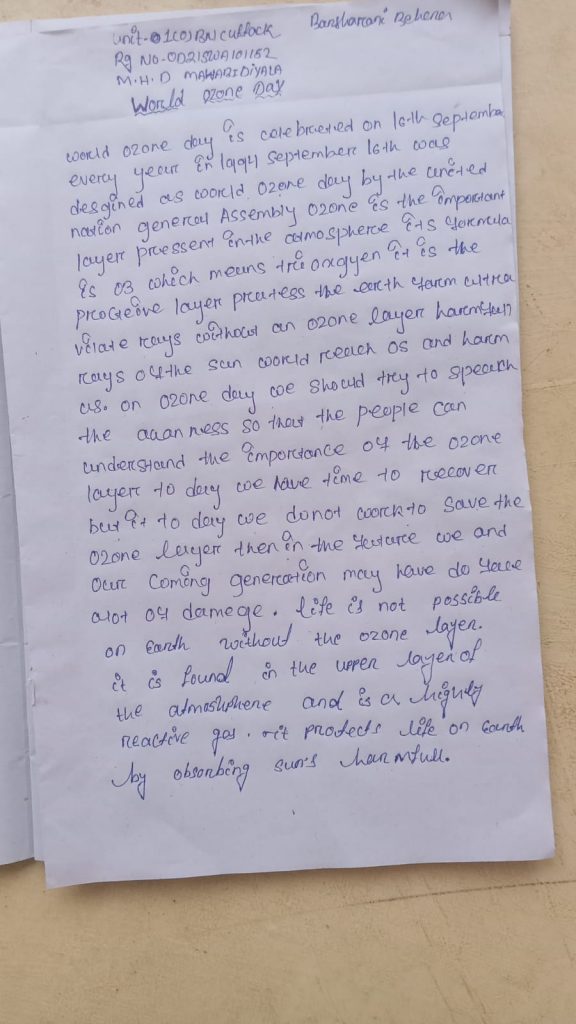 Unit-01(O)BN Cuttack Bansharani Behera
Rg No-OD21SWA101152
M.H.D MAHARIDIYALA
World Ozone Day
world ozone day is celebrated on 16th September
every year in 1994 September 16th was
desgined as world ozone day by the united
nation general Assembly ozone is the important
layer pressent in the atmosphere its formula
is 03 which means tri oxgyen it is the
layer protess the earth farm ultra
rays without an ozone layer
rays of the sun world reach os and harm
us. on ozone day we should try to speach
the so that the people can
understand the importance of the ozone
layer to day we have time to recover
but it to day we donot work to save the
ozone layer then in the future we and
our coming generation may have do face
alot of damege. life is not possible
on Earth without the ozone layer.
it is found in the upper layer of
the atmosphene and is a highly
reactive gas. it protects life on Earth
by absorbing sun's harmfull.